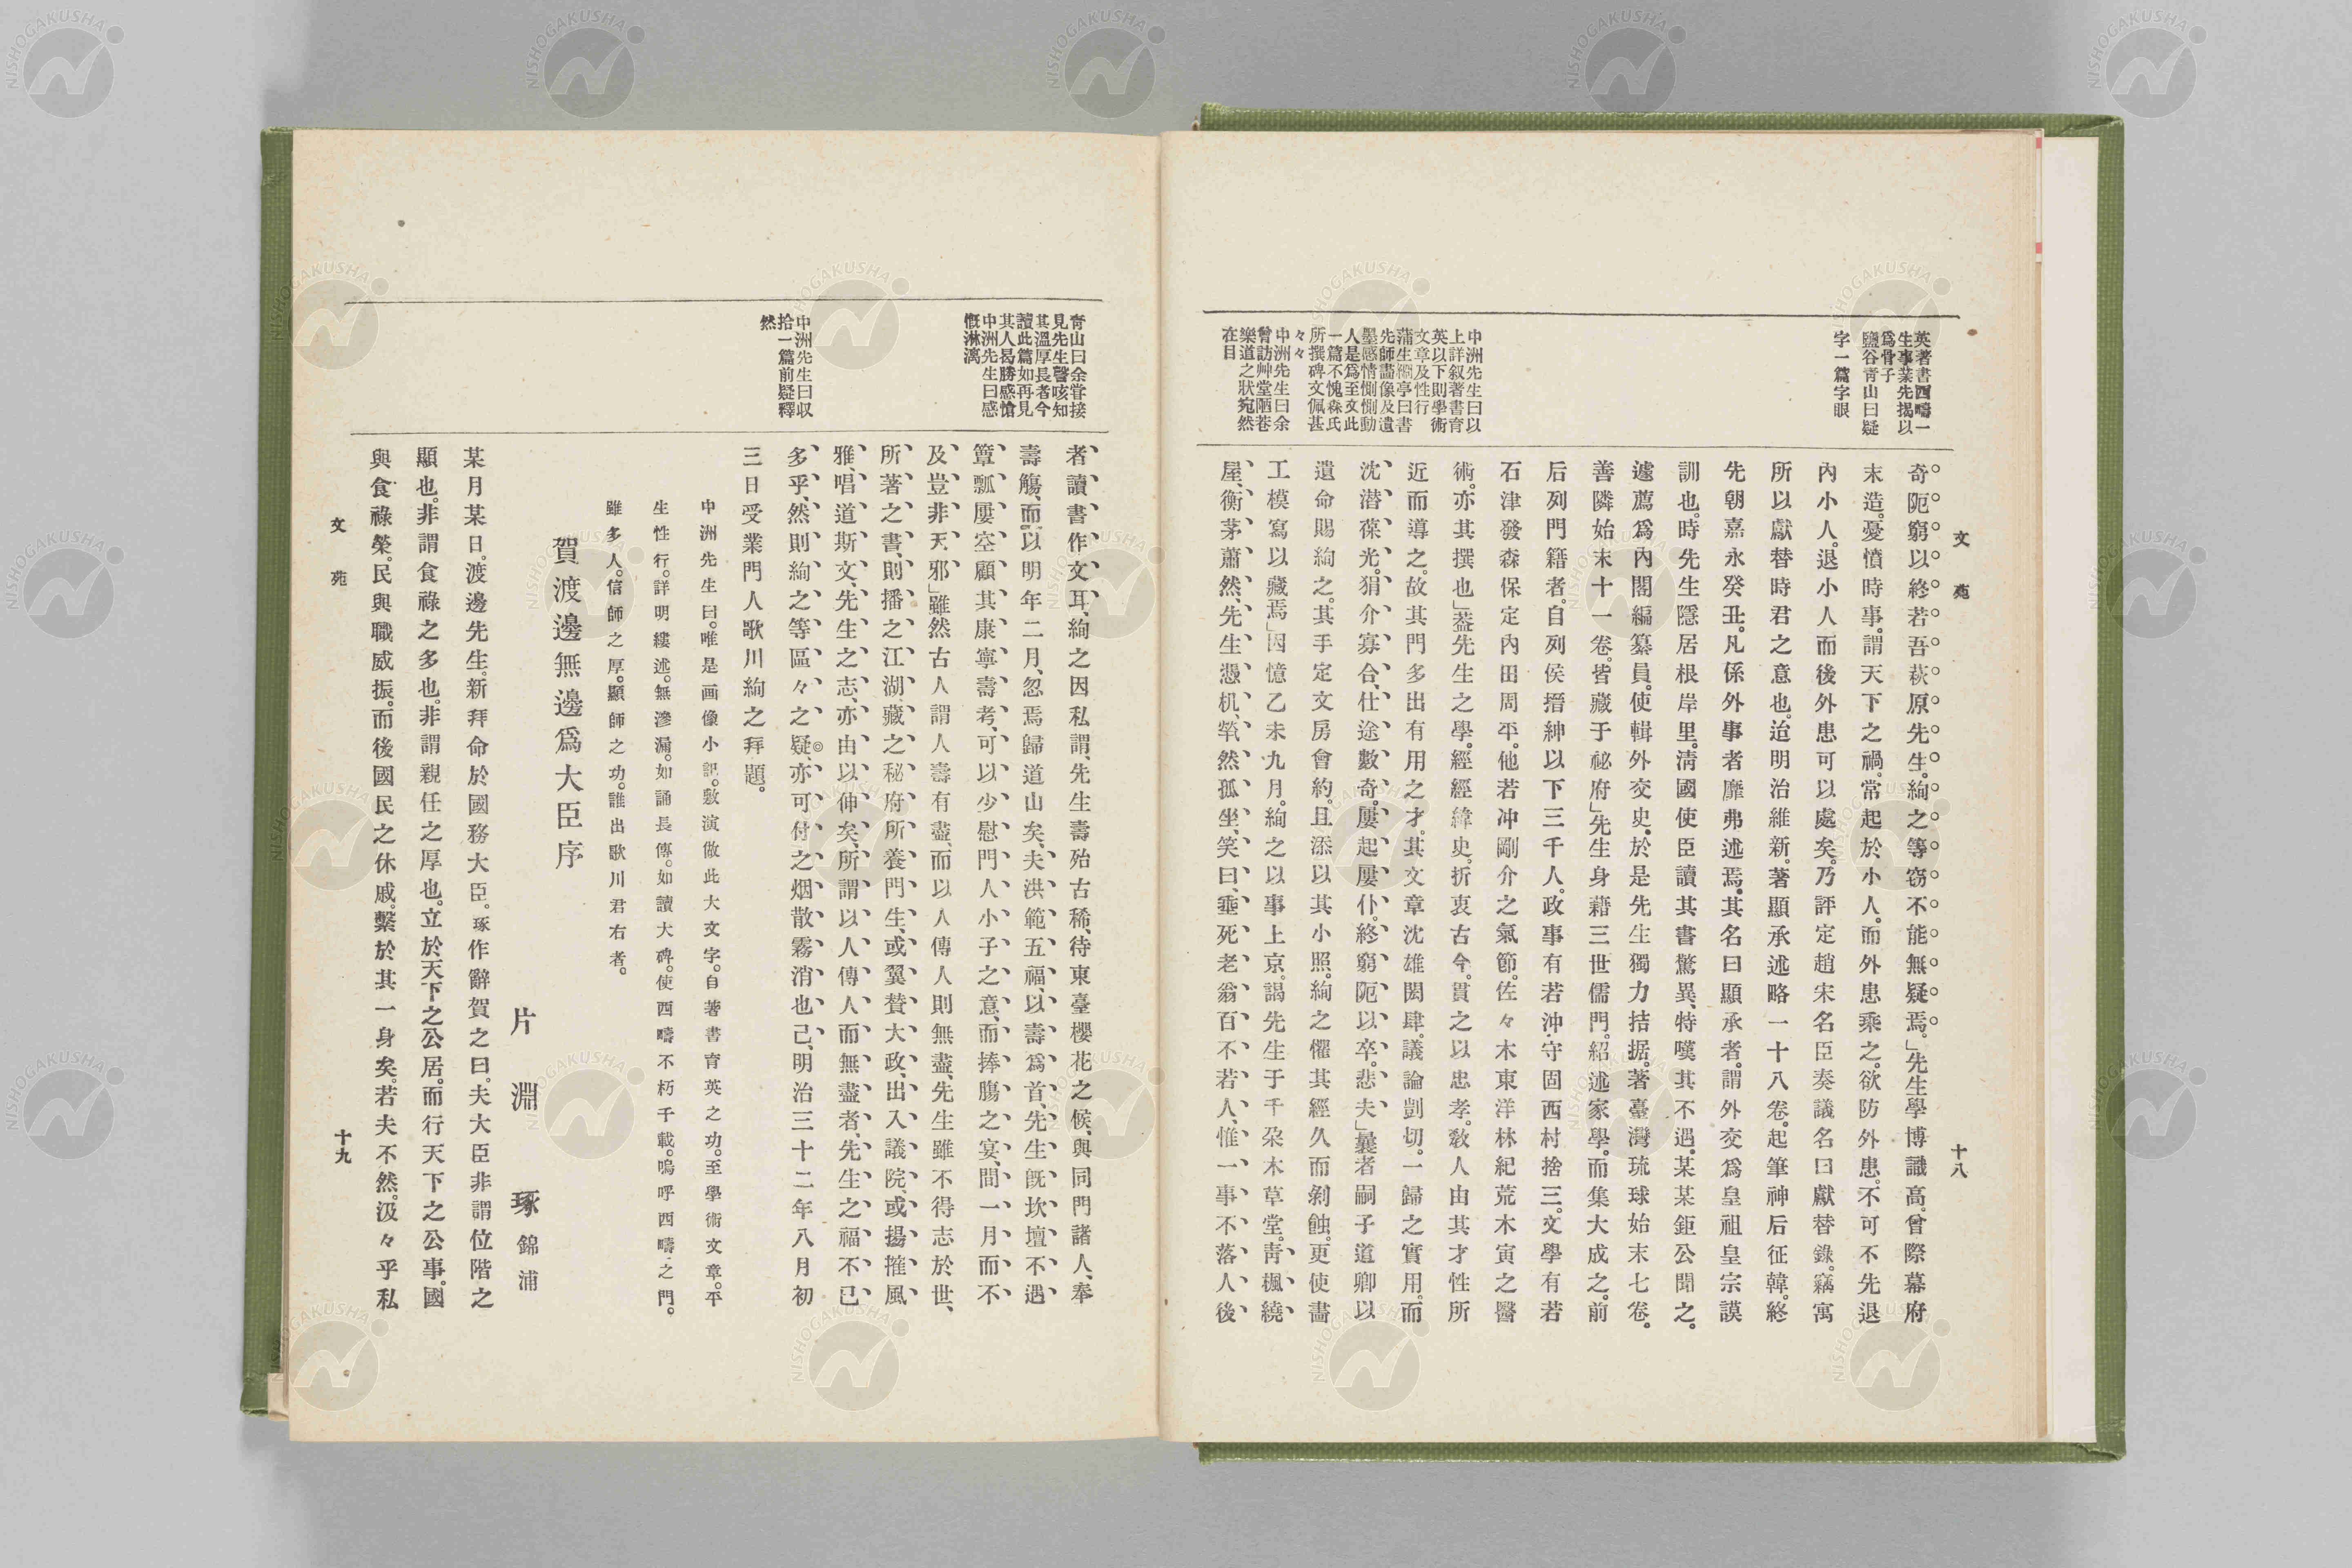 文苑
十八
英著書西疇一
生事業先揭以
爲骨子
鹽谷青山曰疑
字一篇字眼
中洲先生曰以
上詳叙著書育
英以下則學術
文章及性行
蒲生褧亭曰書
先師畵像及遺
墨感情惻惻動
人是爲至文此
一篇不愧森氏
所撰碑文佩甚
々々
中洲先生曰余
曾訪艸堂陋巷
樂道之狀宛然
在目
奇阨窮以終若吾萩原先生。絢之等窃不能無疑焉。」先生學博識高。曾際幕府
末造。憂憤時事。謂天下之禍。常起於小人。而外患乘之。欲防外患。不可不先退
內小人。退小人而後外患可以處矣。乃評定趙宋名臣奏議名曰獻替錄。竊寓
所以獻替時君之意也。迨明治維新。著顯承述略一十八卷。起筆神后征韓。終
先朝嘉永癸丑。凡係外事者靡弗述焉。其名曰顯承者。謂外交爲皇祖皇宗謨
訓也。時先生隱居根岸里。淸國使臣讀其書驚異、特嘆其不遇。某某鉅公聞之。
遽薦爲內閣編纂員。使輯外交史。於是先生獨力拮据。著臺灣琉球始末七卷。
善隣始末十一卷。皆藏于祕府」先生身藉三世儒門。紹述家學。而集大成之。前
后列門籍者。自列侯搢紳以下三千人。政事有若沖守固西村捨三。文學有若
石津發森保定內田周平。他若冲剛介之氣節。佐々木東洋林紀荒木寅之醫
術。亦其撰也」蓋先生之學。經經緯史。折衷古今。貫之以忠孝。敎人由其才性所
近而導之。故其門多出有用之才。其文章沈雄閎肆。議論剴切。一歸之實用。而
沈潜葆光。狷介寡合、仕途數奇。屢起屢仆。終窮阨以卒。悲夫」曩者嗣子道卿以
遺命賜絢之。其手定文房會約。且添以其小照。絢之懼其經久而剝蝕。更使畵
工模寫以藏焉」因憶乙未九月。絢之以事上京。謁先生于千朶木草堂。靑楓繞
屋、衡茅蕭然、先生憑机、煢然孤坐、笑曰、垂死老翁百不若人、惟一事不落人後
青山曰余甞接
見先生謦咳知
其溫厚長者今
讀此篇如再見
其人曷勝感愴
中洲先生曰感
慨淋漓
中洲先生曰収
拾一篇前疑釋
然
者、讀書作文耳、絢之因私謂、先生壽殆古稀、待東臺櫻花之候、與同門諸人、奉
壽觴、而以明年二月、忽焉歸道山矣、夫洪範五福、以壽爲首、先生旣坎壈不遇
簞瓢屢空、顧其康寧壽考、可以少慰門人小子之意、而捧觴之宴、間一月而不
及、豈非天邪」雖然古人謂人壽有盡、而以人傳人則無盡、先生雖不得志於世、
所著之書、則播之江湖、藏之秘府、所養門生、或翼賛大政、出入議院、或揚搉風
雅、唱道斯文、先生之志、亦由以伸矣、所謂以人傳人而無盡者、先生之福不已
多乎、然則絢之等區々之疑、亦可付之烟散霧消也已、明治三十二年八月初
三日受業門人歌川絢之拜題。
中洲先生曰。唯是画像小記。敷演做此大文字。自著書育英之功。至學術文章。平
生性行。詳明縷述。無滲漏。如誦長傳。如讀大碑。使西疇不朽千載。嗚呼西疇之門。
雖多人。信師之厚。顯師之功。誰出歌川君右者。
賀渡邊無邊爲大臣序
片淵琢 錦浦
某月某日。渡邊先生。新拜命於國務大臣。琢作辭賀之曰。夫大臣非謂位階之
顯也。非謂食祿之多也。非謂親任之厚也。立於天下之公居。而行天下之公事。國
與食祿榮。民與職威振。而後國民之休戚。繫於其一身矣。若夫不然。汲々乎私
文苑
十九